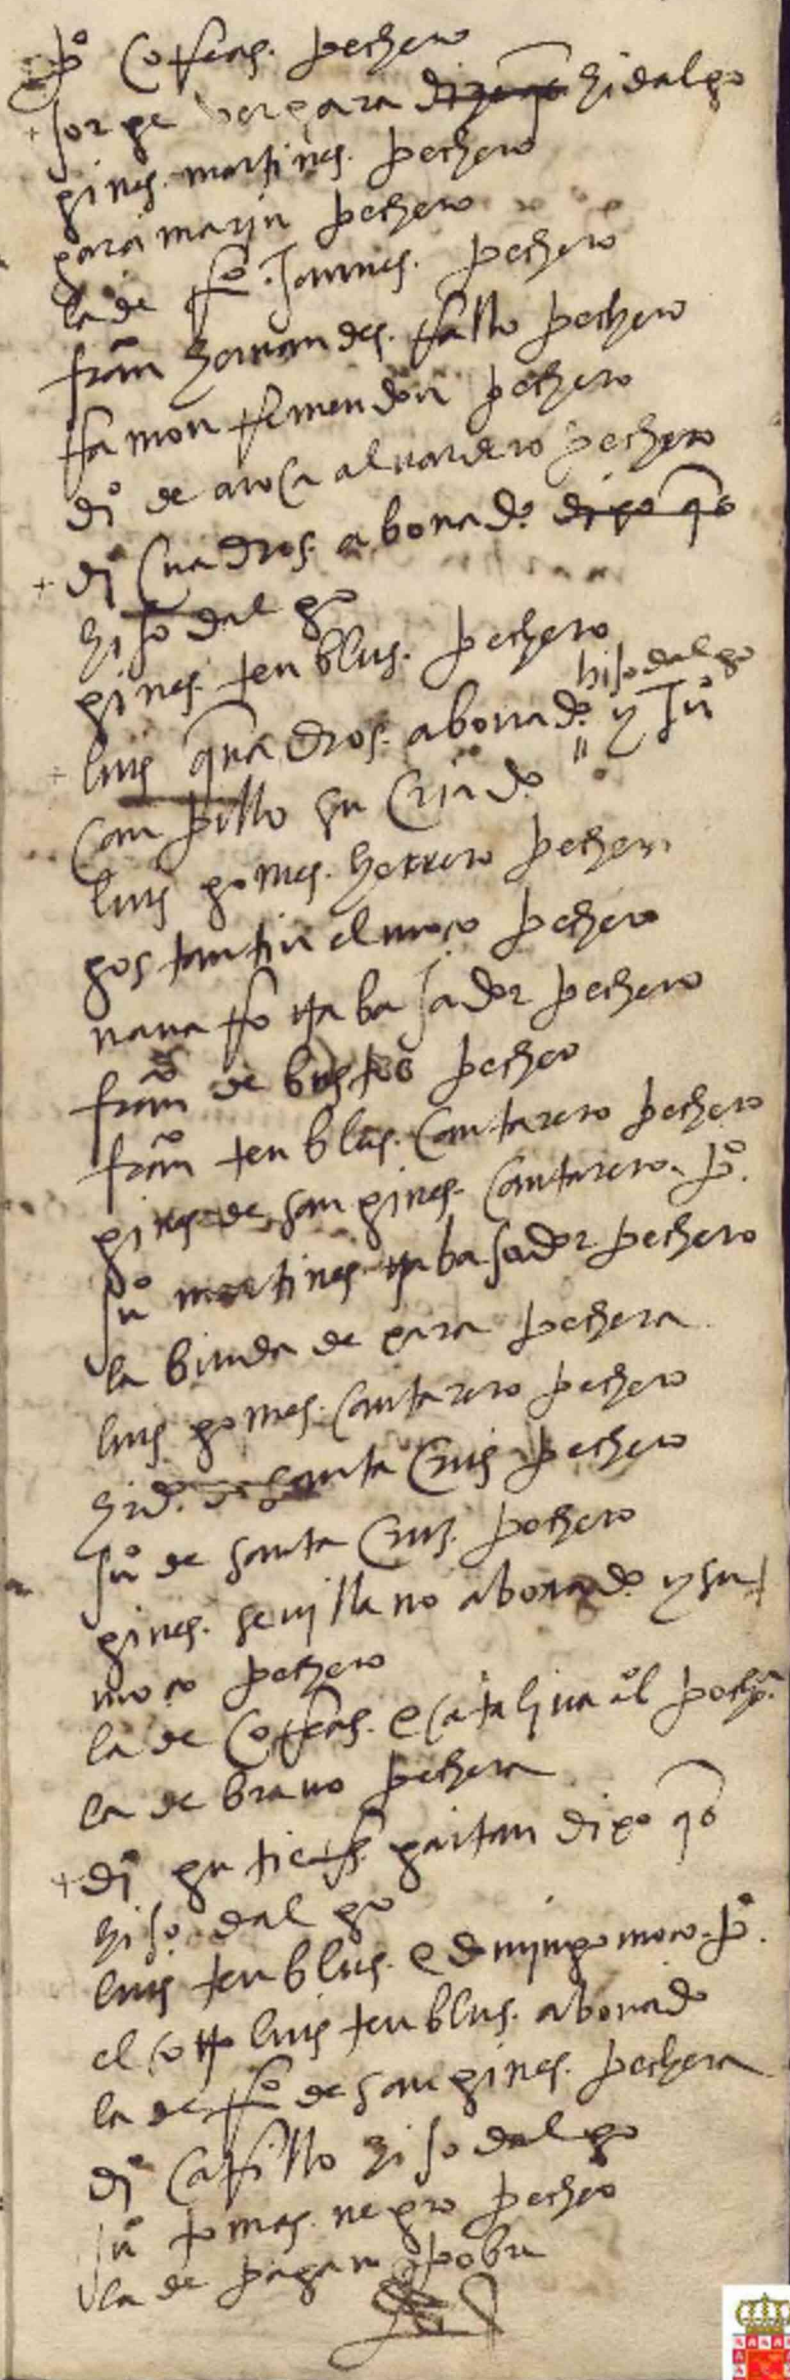 po Cofeas. pechero
+ Jorge vergara hidalgo
gines. martines. pechero
garçi marin pechero
la de fo. Jaimes. pechero
franco hernandes. pechero
Ramon pechero
dio de aroca alvardero pechero
+ dio Cuadros. abonado dixo q es
hijo dalgo
gines. tenblus. pechero
hijo dalgo
+ luis quadros. abonado y Juo
Campillo su Criado
luis gomes. herrero pechero
gostantin el moço pechero
nauarro trabajador pechero
franco de bustos pechero
franco tenblus. Cantarero pechero
gines de san gines. Cantarero. po.
Juo martines trabajador pechero
la biuda de para pechera
luis gomes. Cantarero pechero
hrdo. de santa Crus pechero
Juo de santa Crus. pechero
gines. sevillano abonado y su
moço pechero
la de Cofeas. e catalina pecha.
la de brauo pechera
+ do gutierrs. gaitan dixo q es
hijo dalgo
luis tenblus. e domingo moço. po.
el otro luis tenblus. abonado
la de fo de san gines. pechera
do Castillo hijo dalgo
Juo tomas. negro pechero
la de pagan pobre